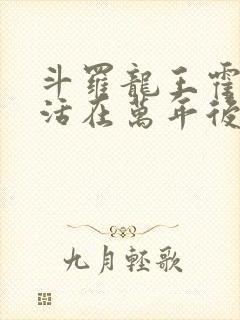 斗羅龍王霍
活在萬年後
九月輕歌